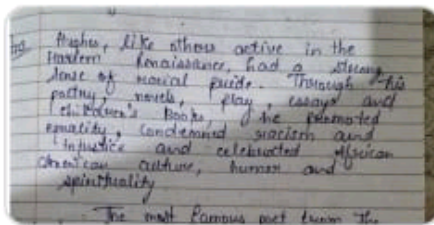 Hughes, like others active in the
Harlem Renaissance, had a strong
sense of racial pride. Through his
poetry, novels, play, essays and
children's Books, he promoted
equality, condemned racism and
injustice and celebrated African
American culture, humor and
spirituality
The most famous poet from the